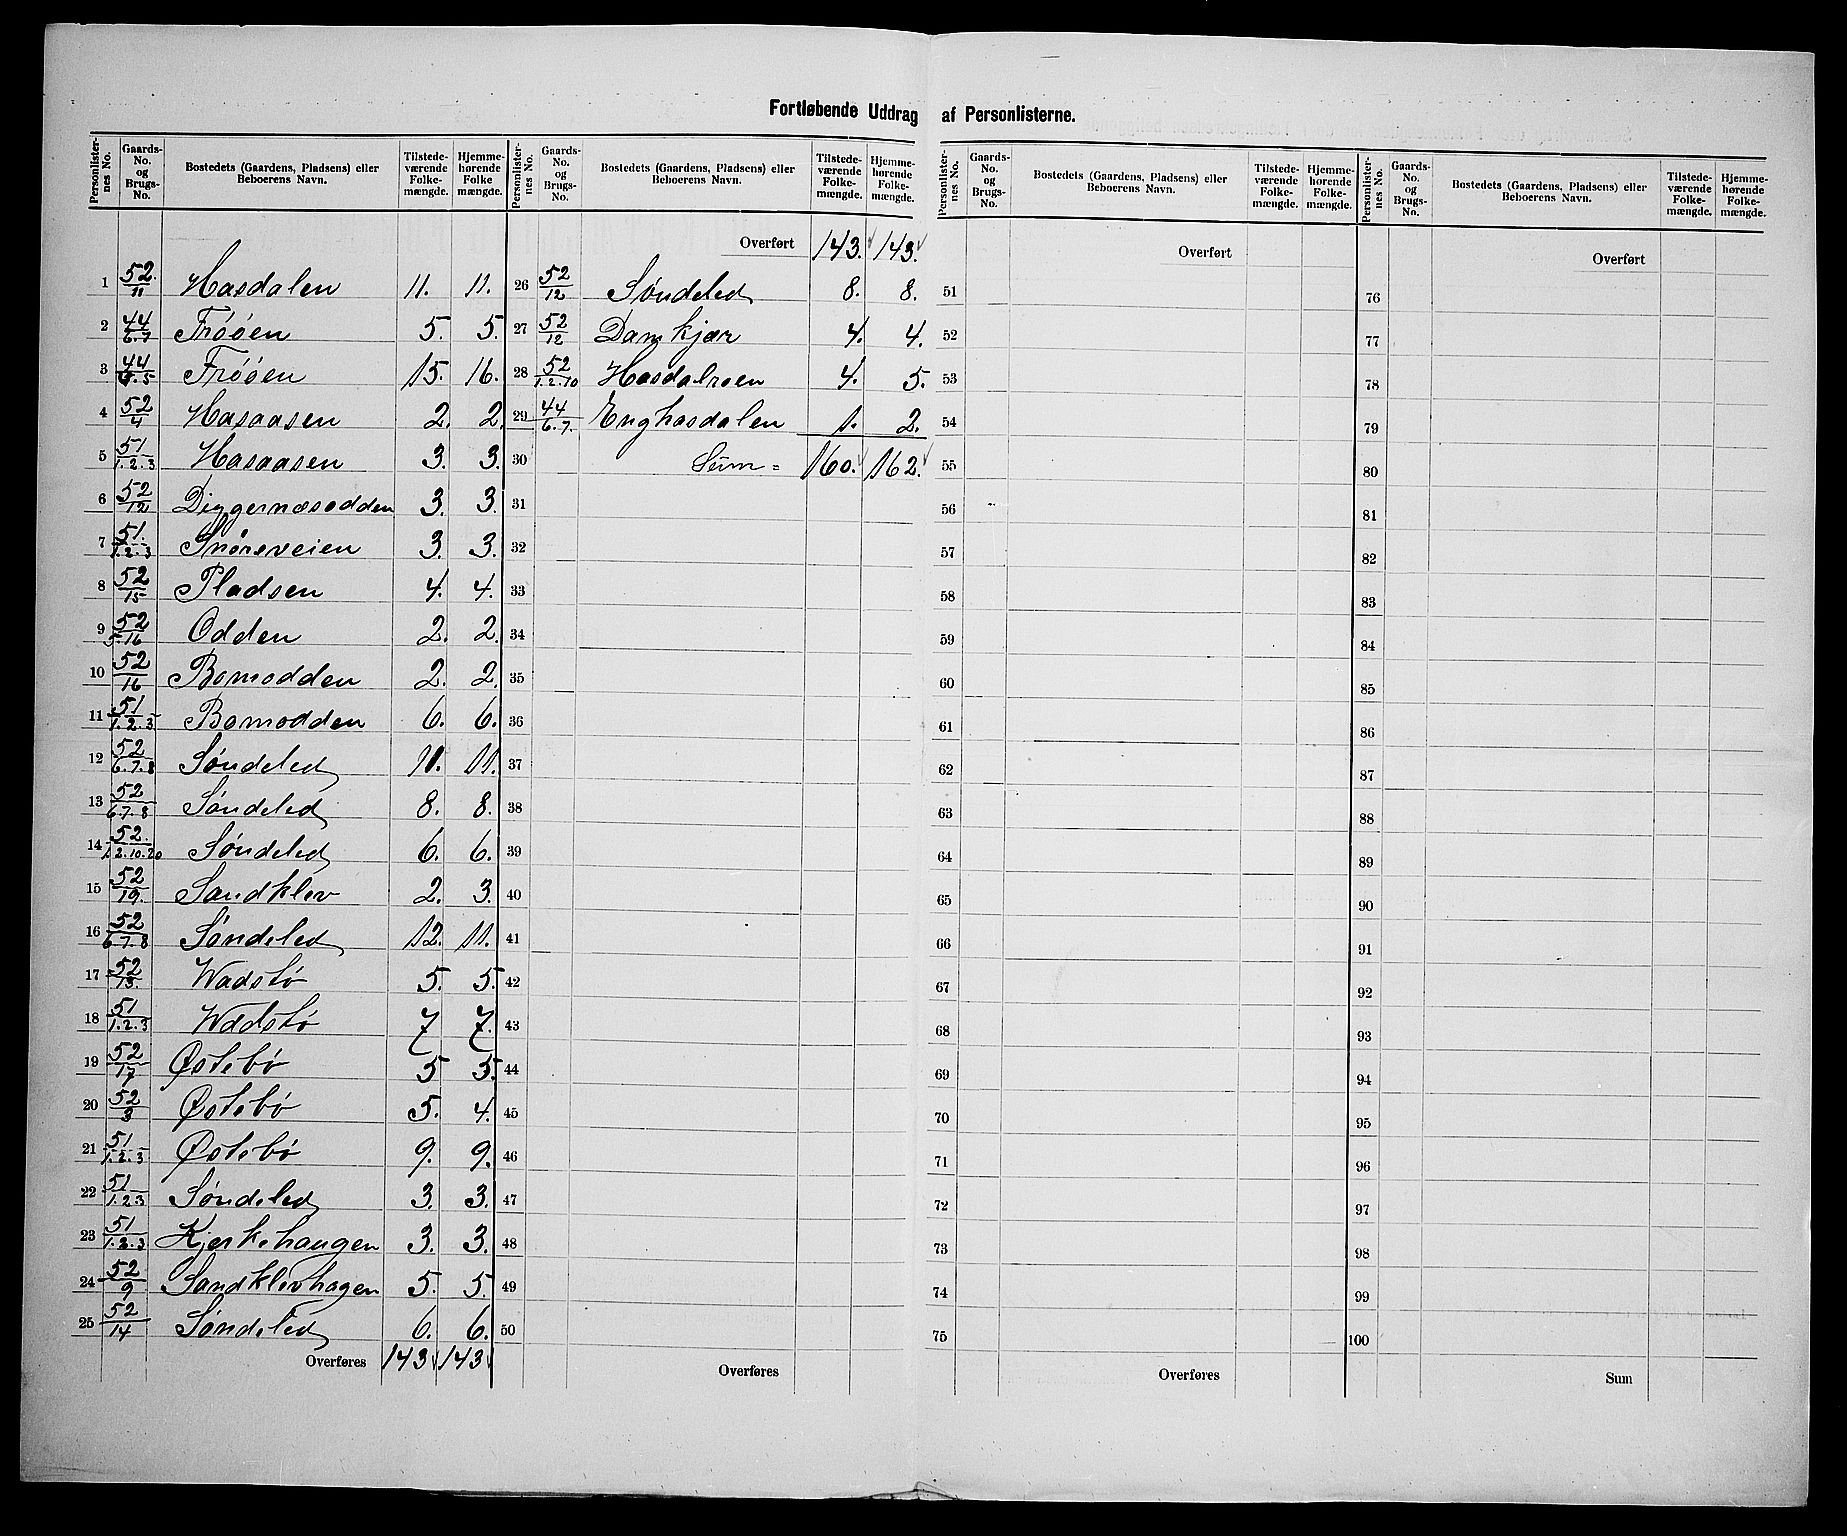 Fortløbende Uddrag af Personlisterne.
Personlister- nes No. | Gaards- No. og Brugs- No. | Bostedets (Gaardens, Pladsens) eller Beboerens Navn. | Tilstede- værende Folke- mængde. | Hjemme- hørende Folke mængde.
1 52/11 Hasdalen 11. 11.
2 44/6.7 Frøøen 5. 5.
3 44/5 Frøøen 15. 16.
4 52/4 Hasaasen 2. 2.
5 51/1.2.3 Hasaasen 3. 3.
6 52/12 Diggernæsodden 3. 3.
7 51/1.2.3 Snøreveien 3. 3.
8 52/15 Pladsen 4. 4.
9 52/5.16 Odden 2. 2.
10 52/16 Bomodden 2. 2.
11 51/1.2.3 Bomodden 6. 6.
12 52/6.7.8 Søndeled 11. 11.
13 52/6.7.8 Søndeled 8. 8.
14 52/1.2.10.20 Søndeled 6. 6.
15 52/19. Sandklev 2. 3.
16 52/6.7.8 Søndeled 12. 11.
17 52/13. Wadstø 5. 5.
18 51/1.2.3 Wadstø 7 7.
19 52/17 Østebø 5 5.
20 52/3 Østebø 5. 4.
21 51/1.2.3 Østebø 9. 9.
22 51/1.2.3 Søndeled 3. 3.
23 51/1.2.3 Kjerkehaugen 3. 3.
24 52/9 Sandklevhagen 5. 5.
25 52/14 Søndeled 6. 6.
Overføres 143 143
Personlister- nes No. | Gaards- No. og Brugs- No. | Bostedets (Gaardens, Pladsens) eller Beboerens Navn. | Tilstede- værende Folke- mængde. | Hjemme- hørende Folke- mængde.
Overført 143. 143.
26 52/12 Søndeled 8. 8.
27 52/12 Damkjær 4. 4.
28 52/1.2.10 Hasdalroen 4. 5.
29 44/6.7. Enghasdalen 1. 2.
30 Sum = 160. 162.
31
32
33
34
35
36
37
38
39
40
41
42
43
44
45
46
47
48
49
50
Overføres
Personlister- nes No. | Gaards- No. og Brugs- No. | Bostedets (Gaardens, Pladsens) eller Beboerens Navn. | Tilstede- værende Folke- mængde. | Hjemme- hørende Folke- mængde.
Overført
51
52
53
54
55
56
57
58
59
60
61
62
63
64
65
66
67
68
69
70
71
72
73
74
75
Overføres
Personlister- nes No. | Gaards- No. og Brugs- No. | Bostedets (Gaardens, Pladsens) eller Beboerens Navn. | Tilstede- værende Folke- mængde. | Hjemme- hørende Folke- mængde.
Overført
76
77
78
79
80
81
82
83
84
85
86
87
88
89
90
91
92
93
94
95
96
97
98
99
100
Sum